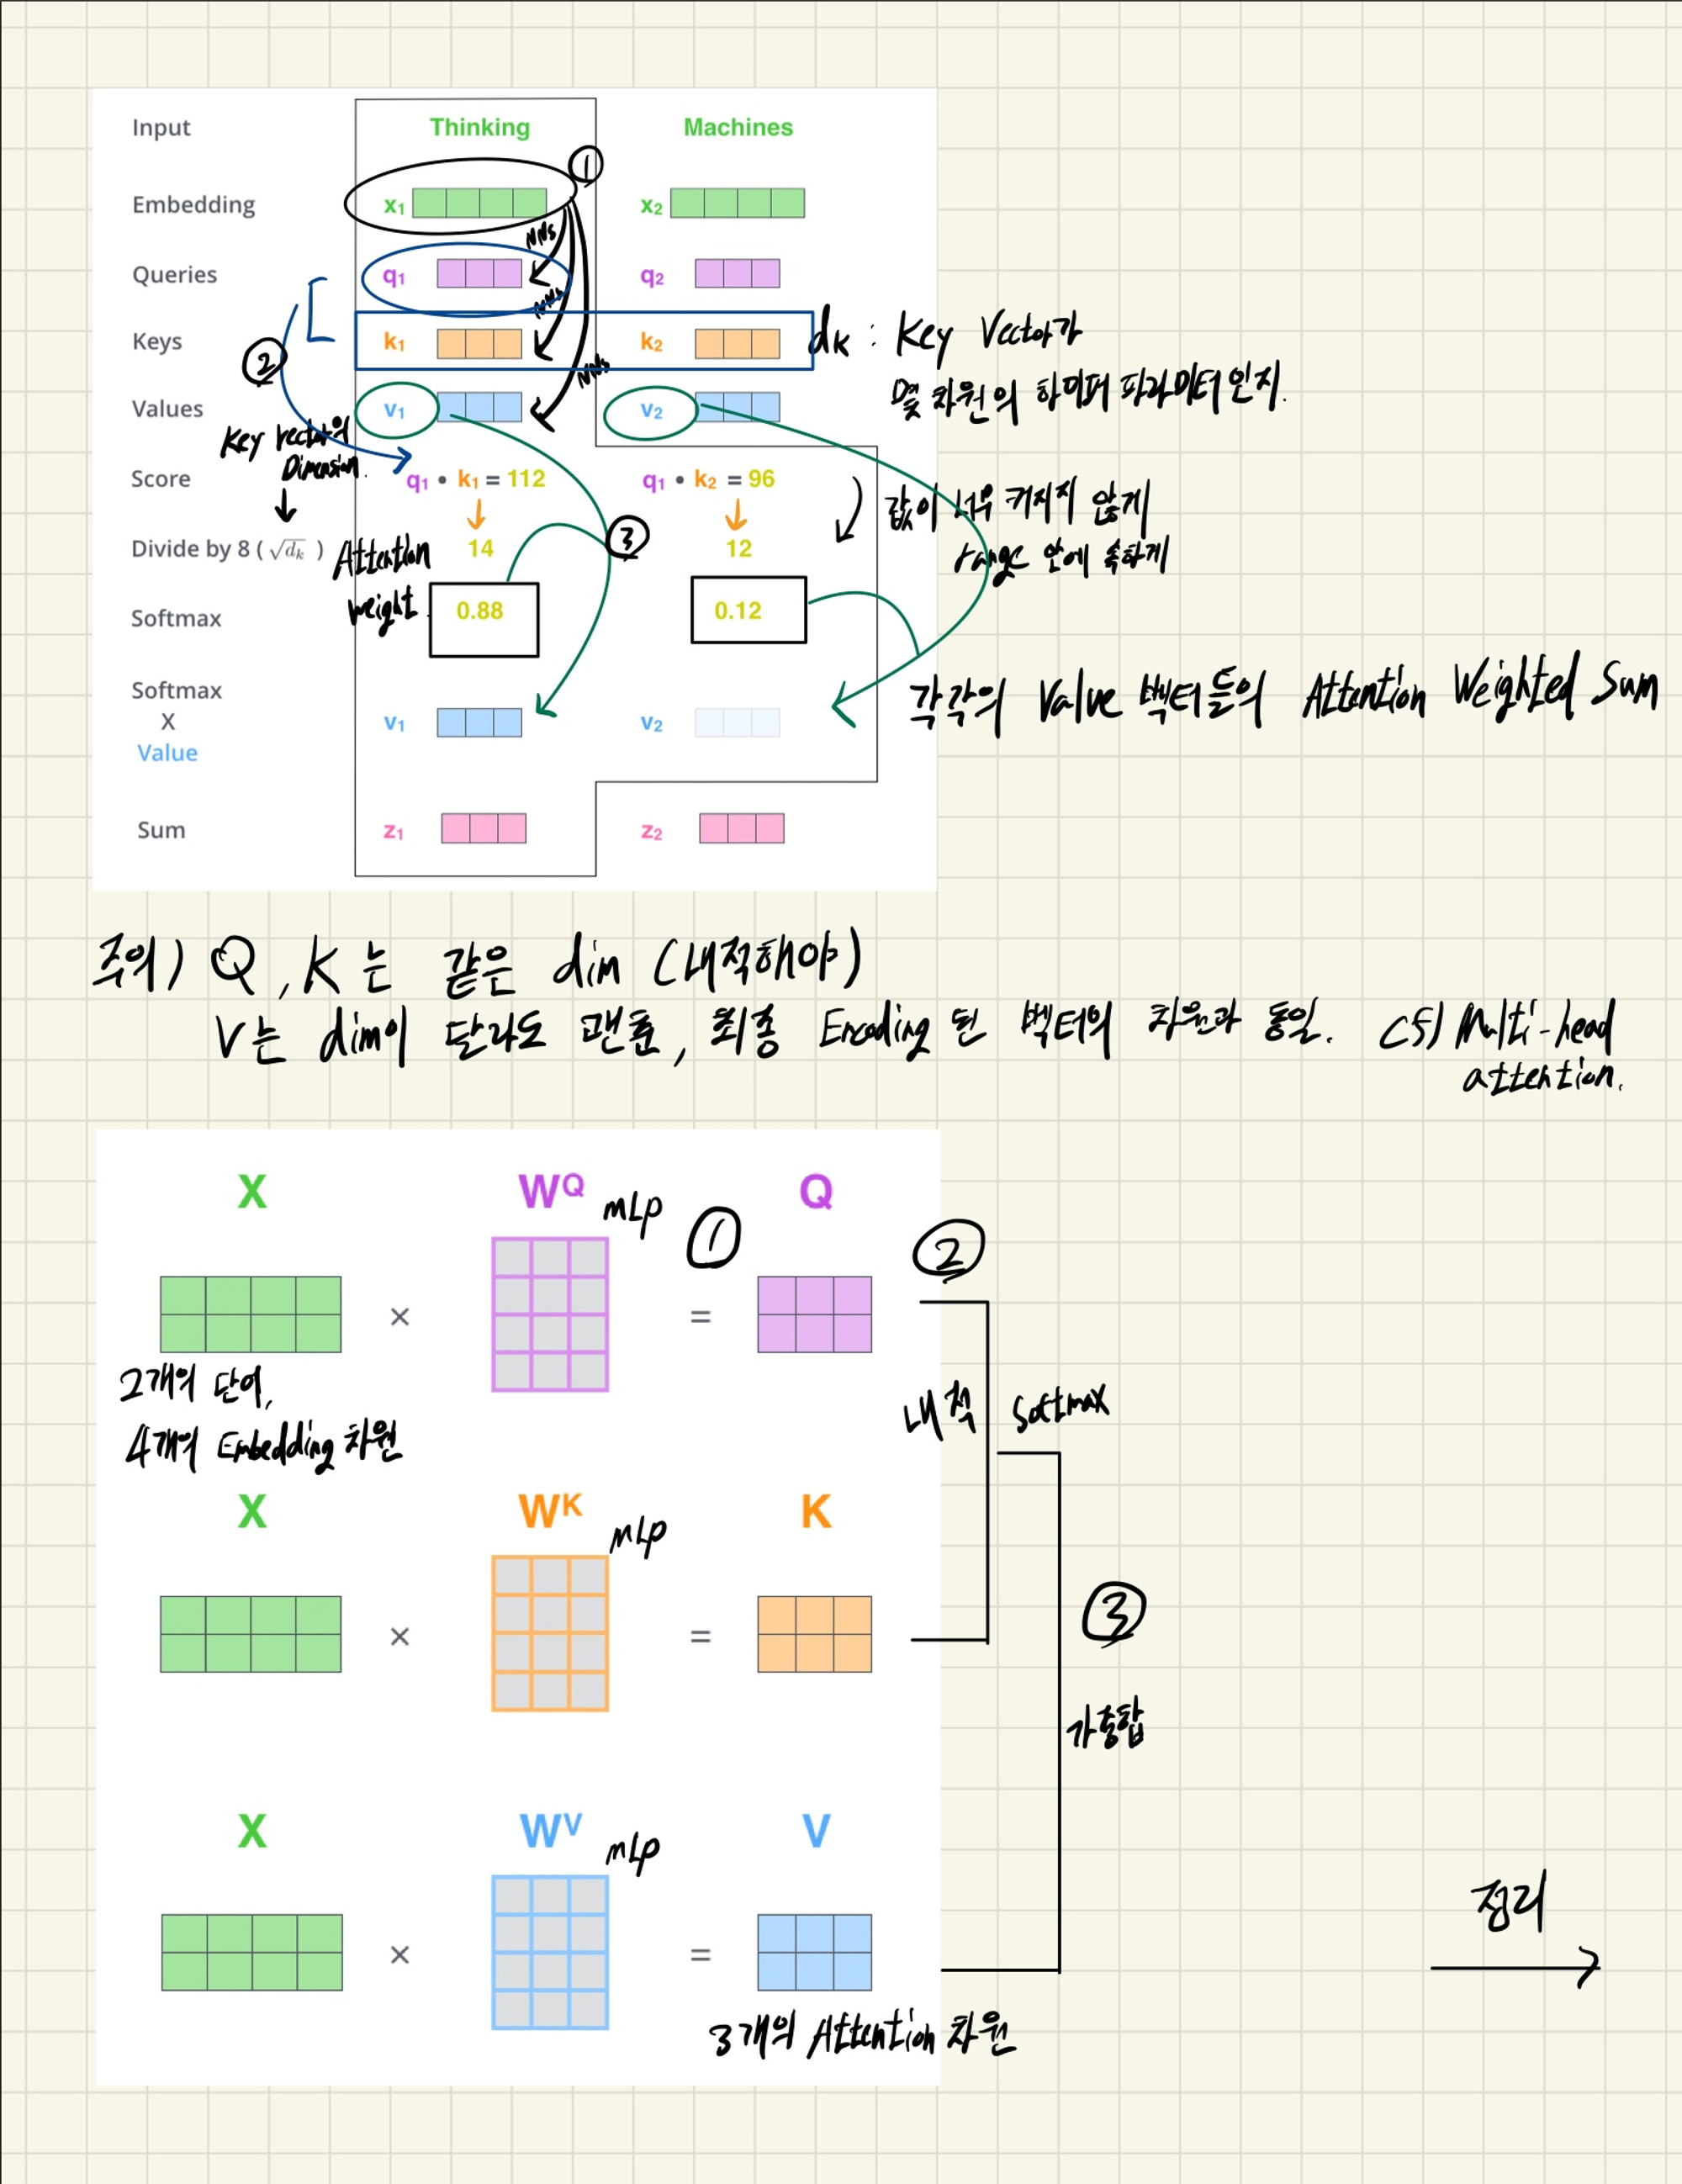 Input Thinking Machines
①
Embedding x₁ x₂
NNs
Queries q₁ q₂
NNs
Keys k₁ k₂
dk : Key Vector가
몇 차원의 하이퍼 파라미터인지.
②
NNs
Values v₁ v₂
Key vector의
Dimension.
Score q₁ • k₁ = 112 q₁ • k₂ = 96
값이 너무 커지지 않게
range 안에 속하게
③
Divide by 8 ( √dₖ ) 14 12
Attention
weight.
Softmax 0.88 0.12
Softmax
X
Value
v₁ v₂
각각의 Value 벡터들의 Attention Weighted Sum
Sum z₁ z₂
주의) Q, K는 같은 dim (내적해야)
V는 dim이 달라도 괜춘, 최종 Encoding 된 벡터의 차원과 동일. cf) Multi-head
attention.
X W^Q mLp Q
①
②
× =
2개의 단어,
4개의 Embedding 차원
내적 Softmax
X W^K mLp K
× =
③
가중합
X W^V mLp V
× =
정리
3개의 Attention 차원